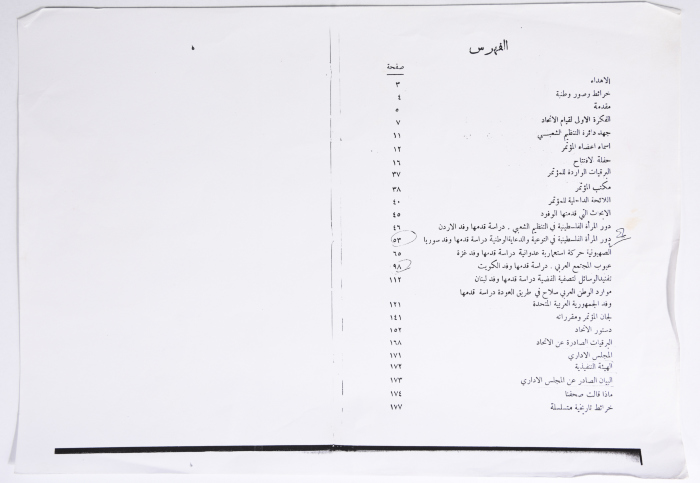 الفهرس
صفحة
الاهداء ٣
خرائط وصور وطنية ٤
مقدمة ٥
الفكرة الاولى لقيام الاتحاد ٧
جهد دائرة التنظيم الشعبي ١١
اسماء اعضاء المؤتمر ١٢
حفلة الافتتاح ١٦
البرقيات الواردة للمؤتمر ٣٧
مكتب المؤتمر ٣٨
اللائحة الداخلية للمؤتمر ٤٠
الابحاث التي قدمتها الوفود ٤٥
دور المرأة الفلسطينية في التنظيم الشعبي . دراسة قدمها وفد الاردن ٤٦
دور المرأة الفلسطينية في التوعية والدعاية الوطنية دراسة قدمها وفد سوريا ٥٣
الصهيونية حركة استعمارية عدوانية دراسة قدمها وفد غزة ٦٥
عيوب المجتمع العربي . دراسة قدمها وفد الكويت ٩٨
تفنيد الوسائل لتصفية القضية دراسة قدمها وفد لبنان ١١٢
موارد الوطن العربي سلاح في طريق العودة دراسة قدمها
وفد الجمهورية العربية المتحدة ١٢١
لجان المؤتمر ومقرراته ١٤١
دستور الاتحاد ١٥٢
البرقيات الصادرة عن الاتحاد ١٦٨
المجلس الاداري ١٧١
الهيئة التنفيذية ١٧٢
البيان الصادر عن المجلس الاداري ١٧٣
ماذا قالت صحفنا ١٧٤
خرائط تاريخية متسلسلة ١٧٧